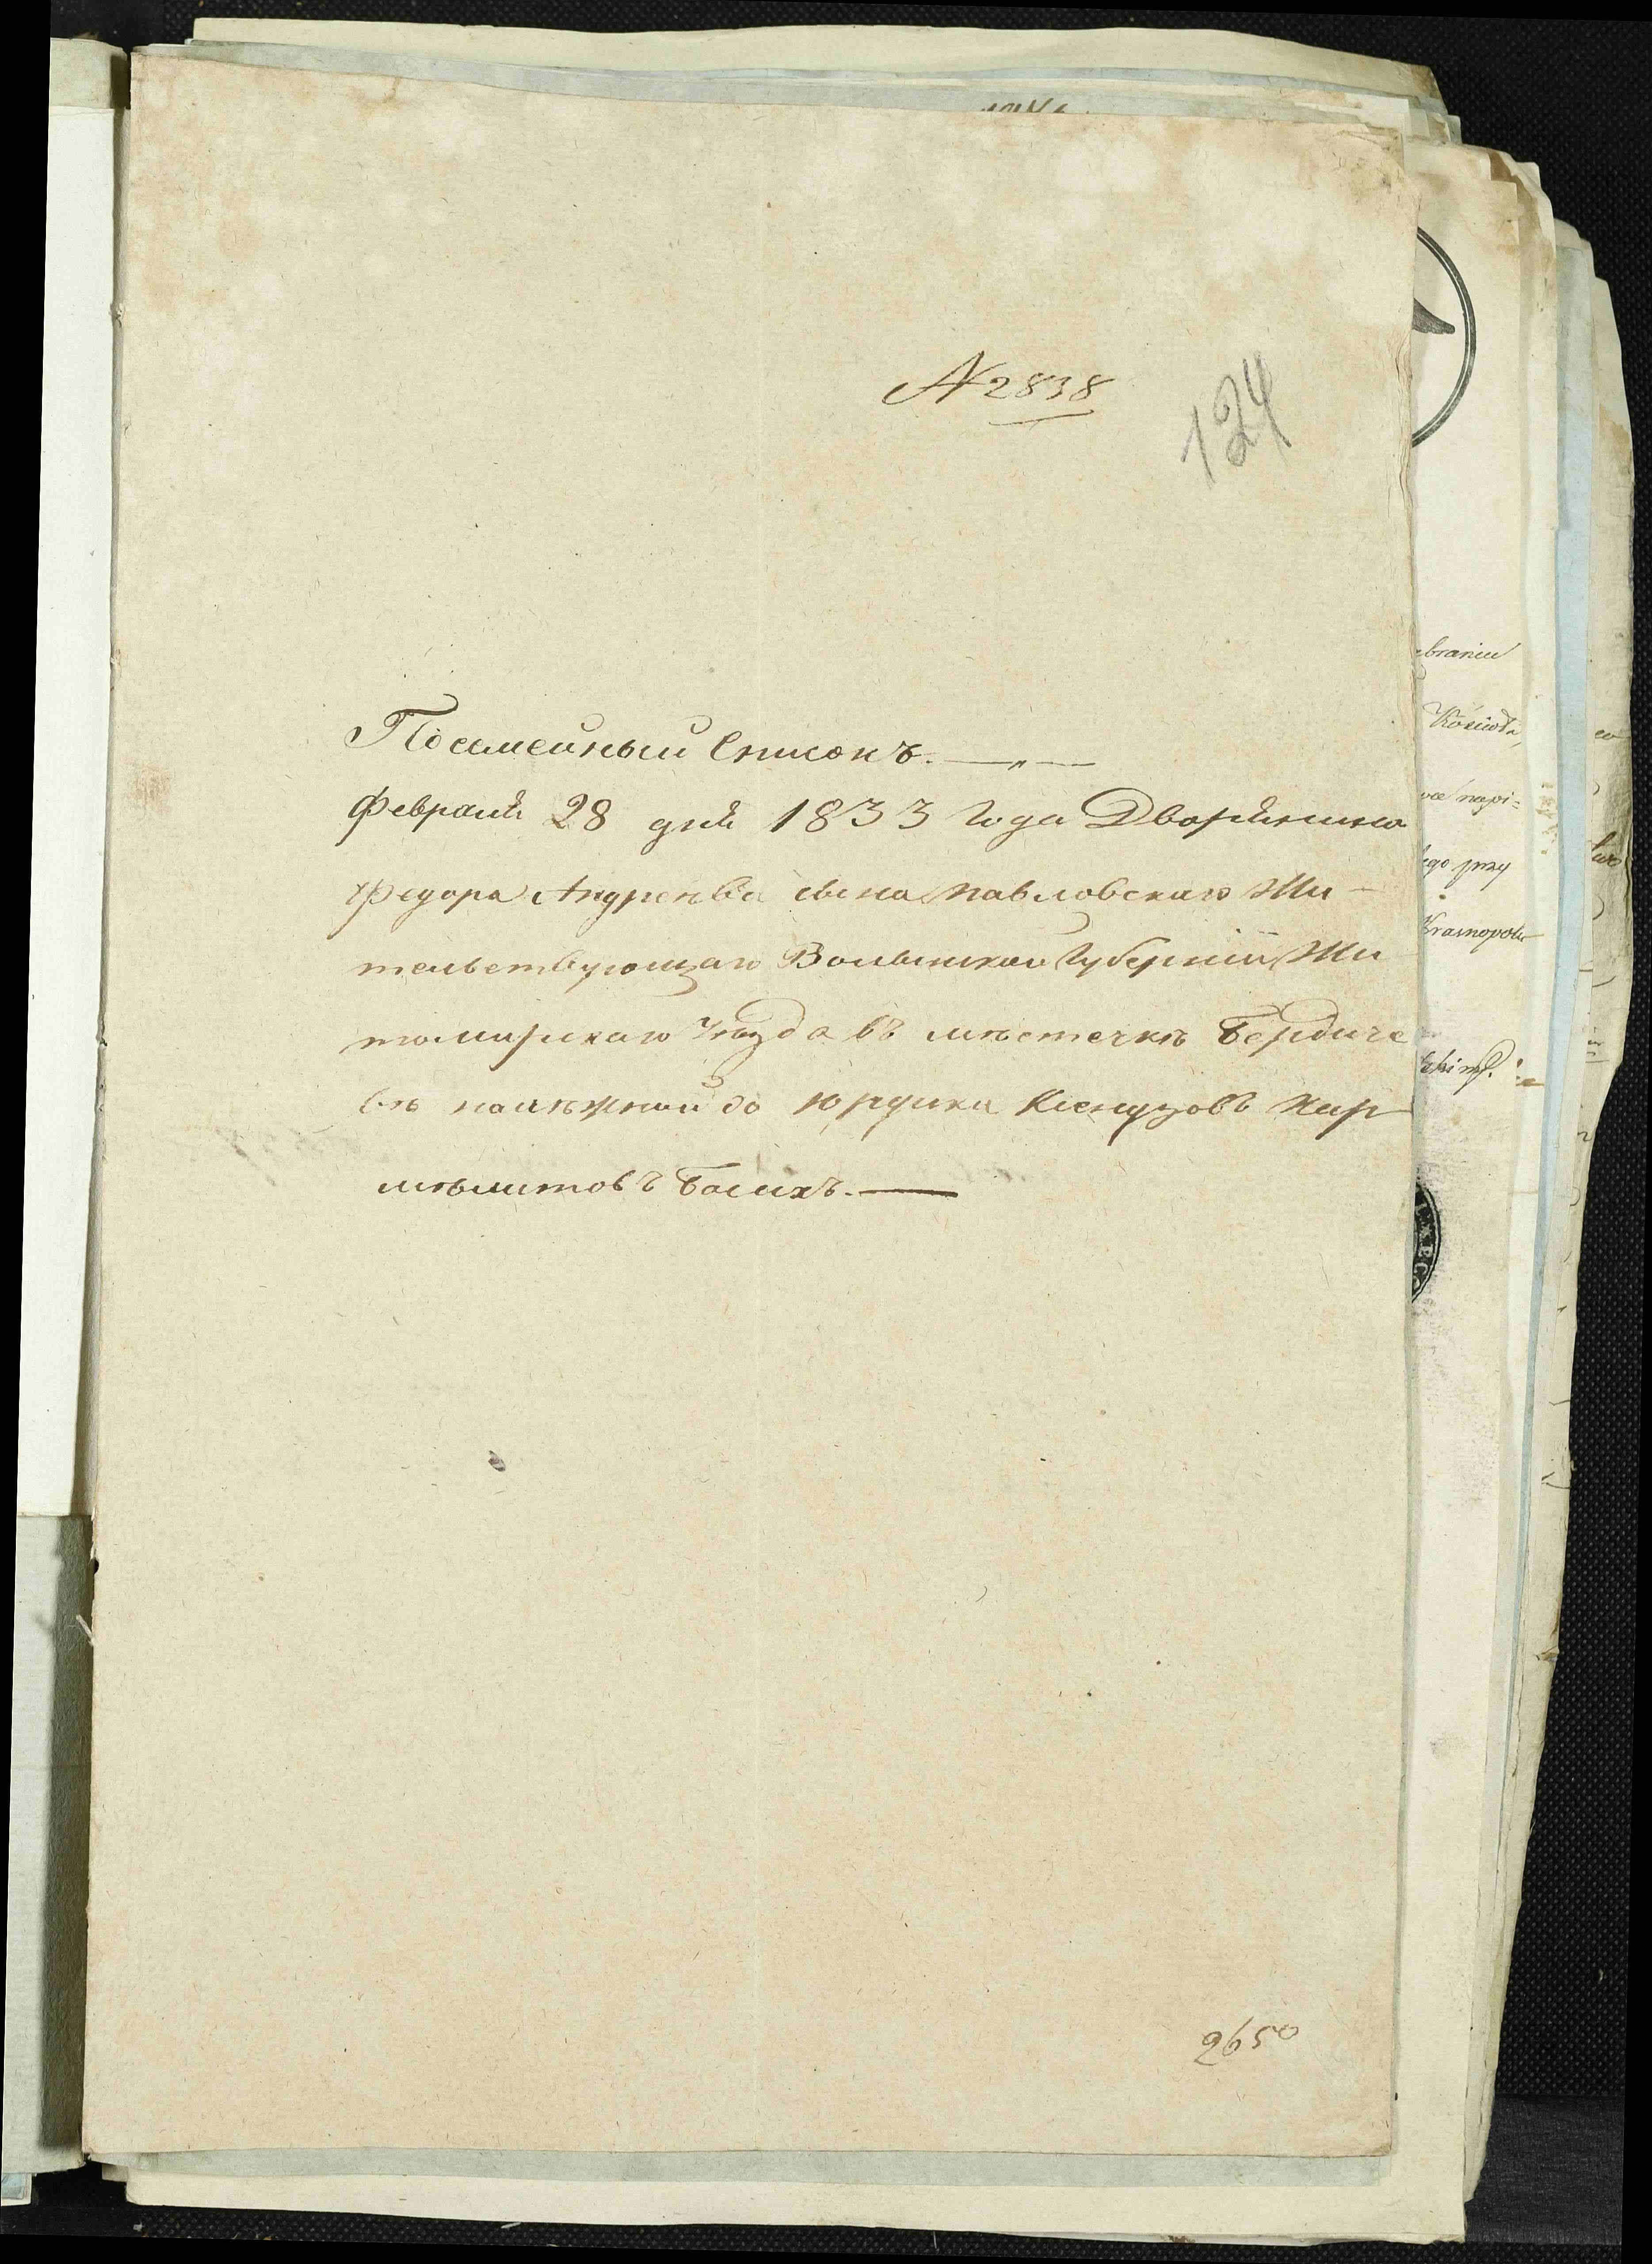 N 2838
124
Посемейный Списокъ. —„—
Февраля 28 дня 1833 Года Дворянина
Федора Андреѣва сына Павловскаго Жи-
тельствующаго Волынской Губерніи Жи
томирскаго Уѣзда въ мѣстечкѣ Бердиче
вѣ належной до юрдики Ксендзовъ Кар
мѣлитовъ Босихъ. —
2650